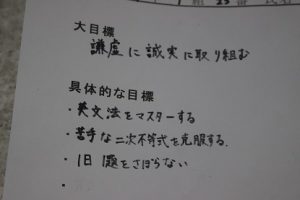 大目標
謙虚に誠実に取り組む
具体的な目標
・英文法をマスターする
・苦手な二次不等式を克服する.
・1日1題をさぼらない
・